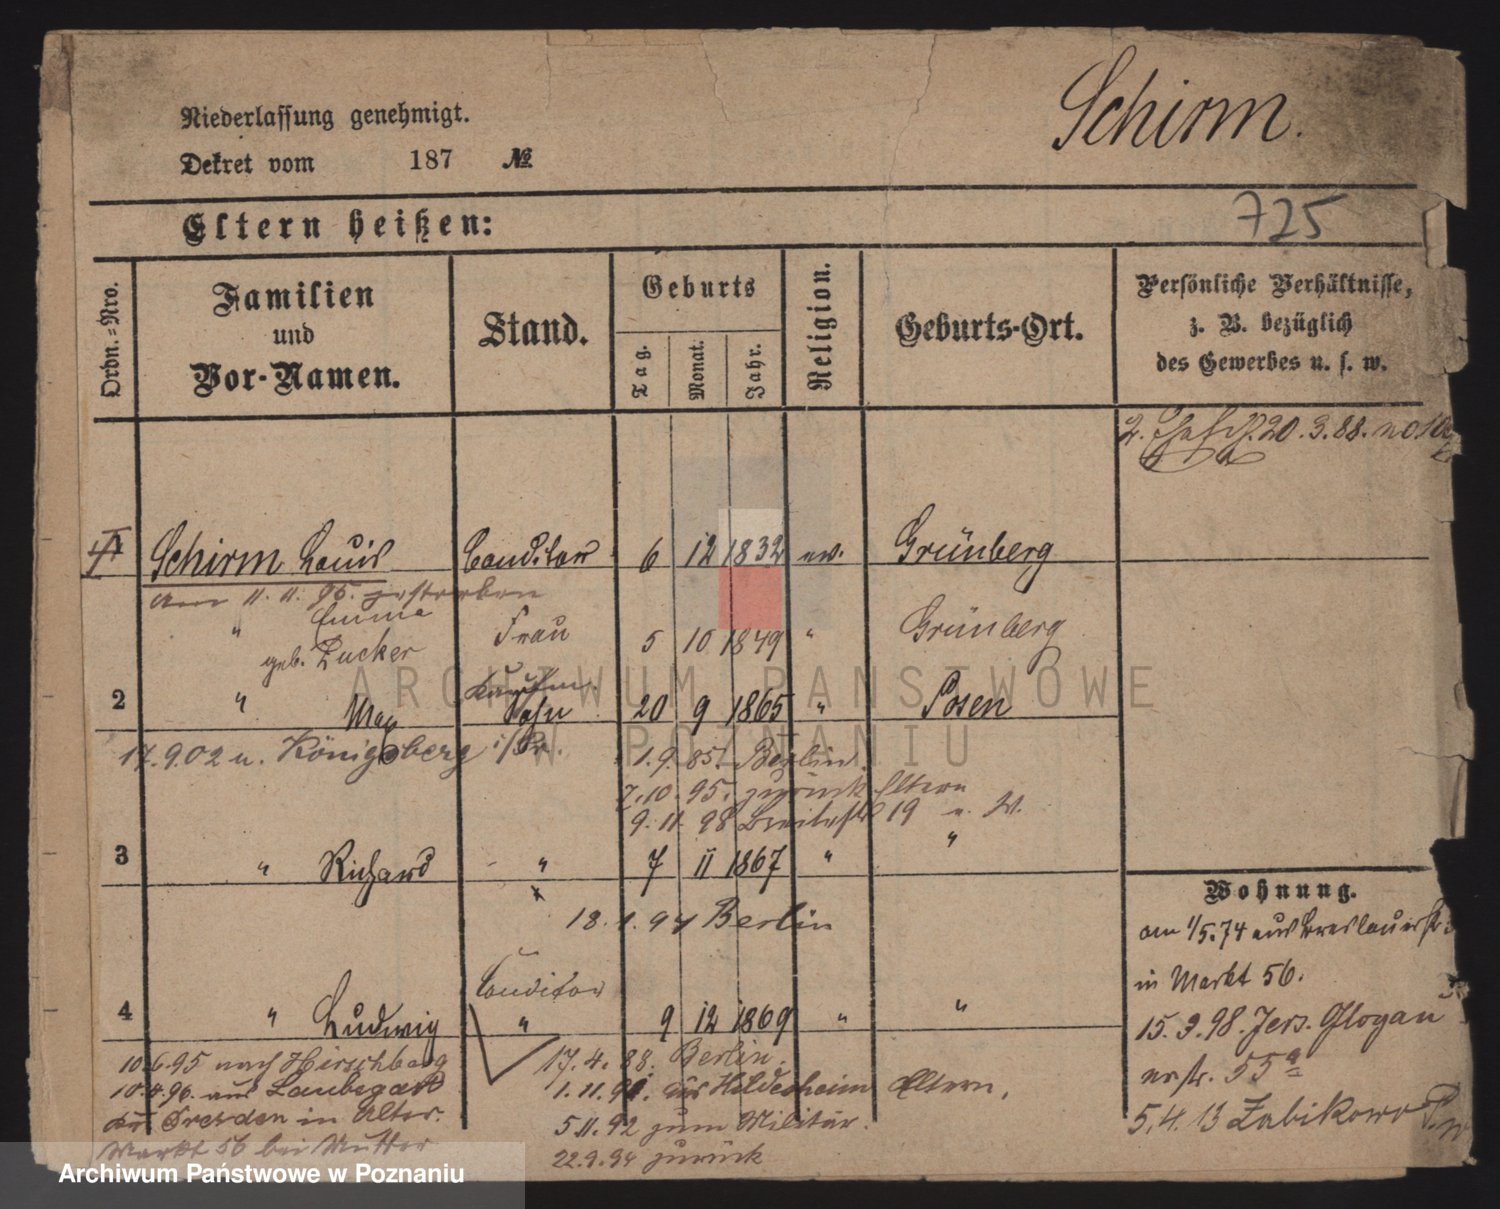 Schirm.
Niederlassung genehmigt.
Dekret vom 187 №
725
Eltern heißen:
Ordn.=Nro.
Familien und Vor-Namen.
Stand.
Geburts
Tag.
Monat.
Jahr.
Religion.
Geburts-Ort.
Persönliche Verhältnisse,
z. B. bezüglich
des Gewerbes u. s. w.
20.3.88.
1 Schirm Louis Conditor 6 12 1832 ev. Grünberg
am 11.11.95. gestorben
" Emma Frau 5 10 1849 " Grünberg
geb. Zucker
Kaufm.
2 " Max Sohn 20 9 1865 " Posen
17.9.02 n. Königsberg i/Pr.
1.9.85. Berlin.
7.10.95. zurück Eltern
9.11.98 Breitestr 19
3 " Richard " 7 11 1867 " "
18.1.94 Berlin
Conditor
4 " Ludwig " 9 12 1869 " "
10.6.95 nach Hirschberg
10.4.96. aus Laubegast
bei Dresden in Alter.
Markt 56 bei Mutter
17.4.88. Berlin.
1.11.91. aus Hildesheim Eltern.
5.11.92 zum Militär.
22.9.94 zurück
Wohnung.
am 1/5.74 aus Breslauerstr
in Markt 56.
15.3.98. Jers. Glogau
erstr. 55a
5.4.13 Zabikowo
ARCHIWUM PAŃSTWOWE
W POZNANIU
Archiwum Państwowe w Poznaniu